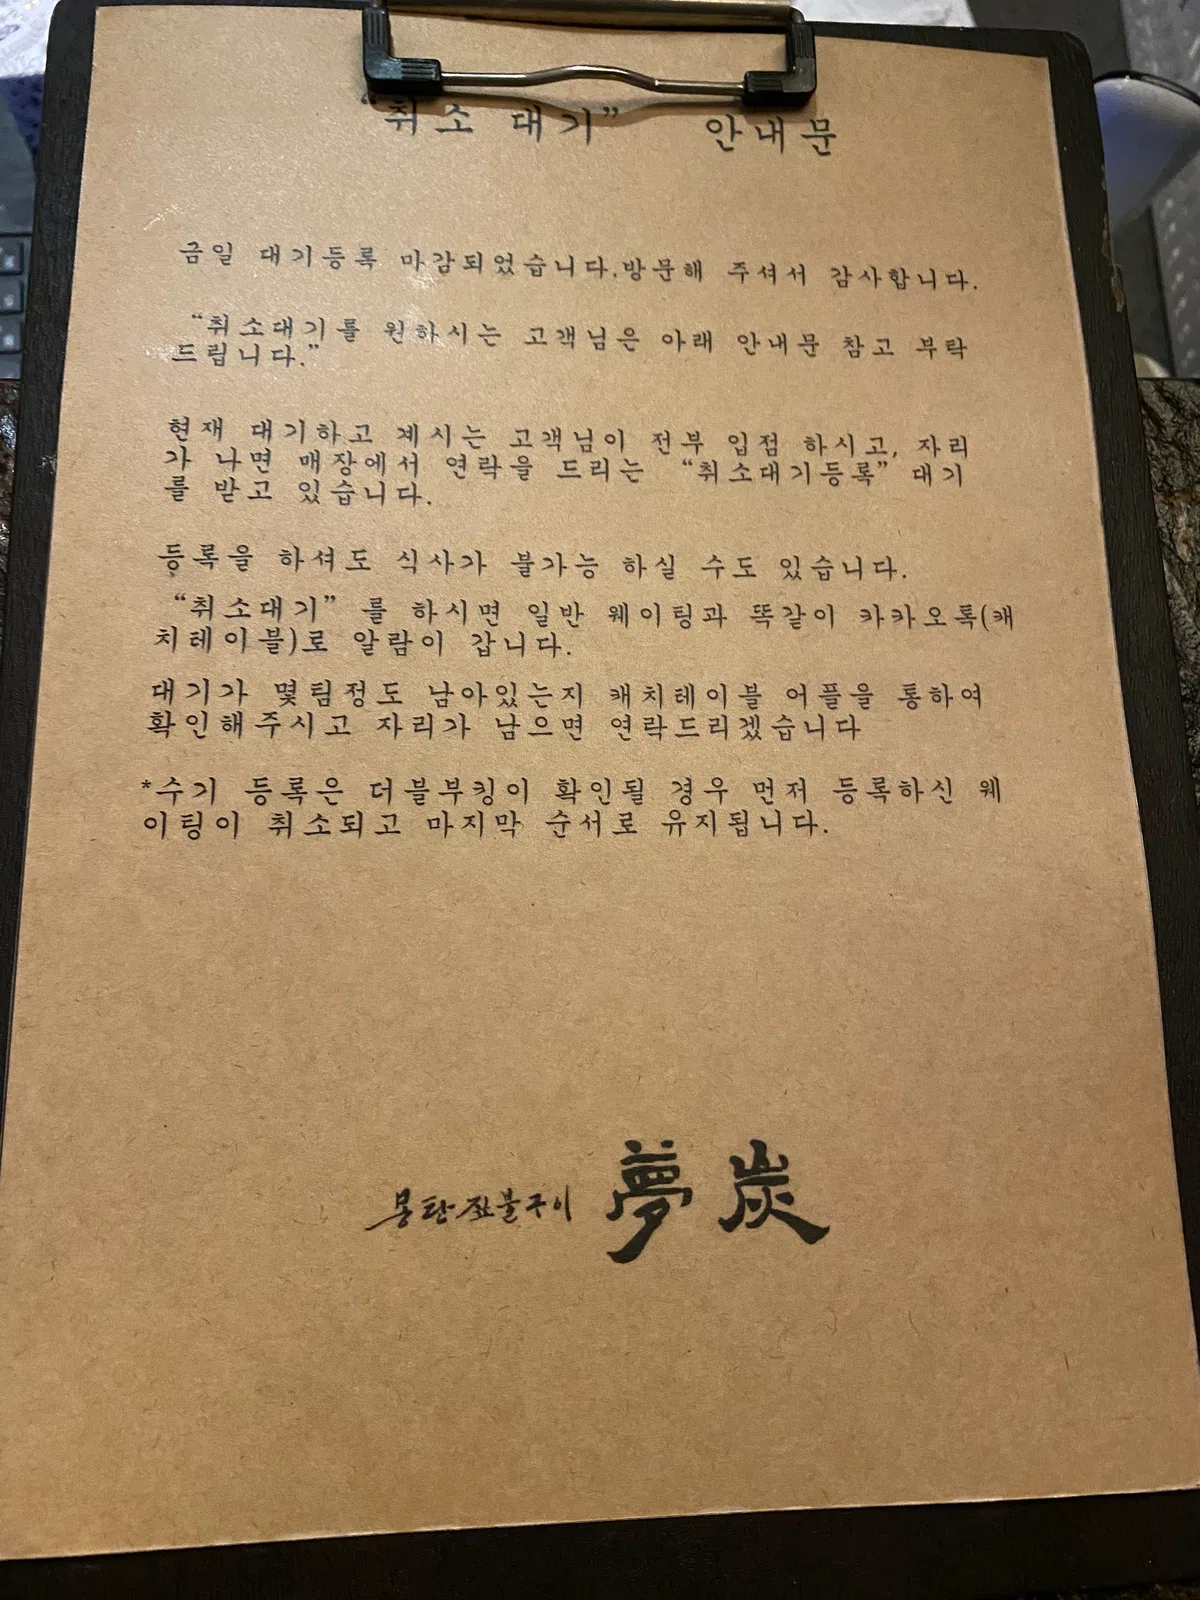 “취소 대기” 안내문
금일 대기등록 마감되었습니다.방문해 주셔서 감사합니다.
“취소대기를 원하시는 고객님은 아래 안내문 참고 부탁
드립니다.”
현재 대기하고 계시는 고객님이 전부 입점 하시고, 자리
가 나면 매장에서 연락을 드리는 “취소대기등록” 대기
를 받고 있습니다.
등록을 하셔도 식사가 불가능 하실 수도 있습니다.
“취소대기” 를 하시면 일반 웨이팅과 똑같이 카카오톡(캐
치테이블)로 알람이 갑니다.
대기가 몇팀정도 남아있는지 캐치테이블 어플을 통하여
확인해주시고 자리가 남으면 연락드리겠습니다
*수기 등록은 더블부킹이 확인될 경우 먼저 등록하신 웨
이팅이 취소되고 마지막 순서로 유지됩니다.
몽탄 짚불구이 夢炭